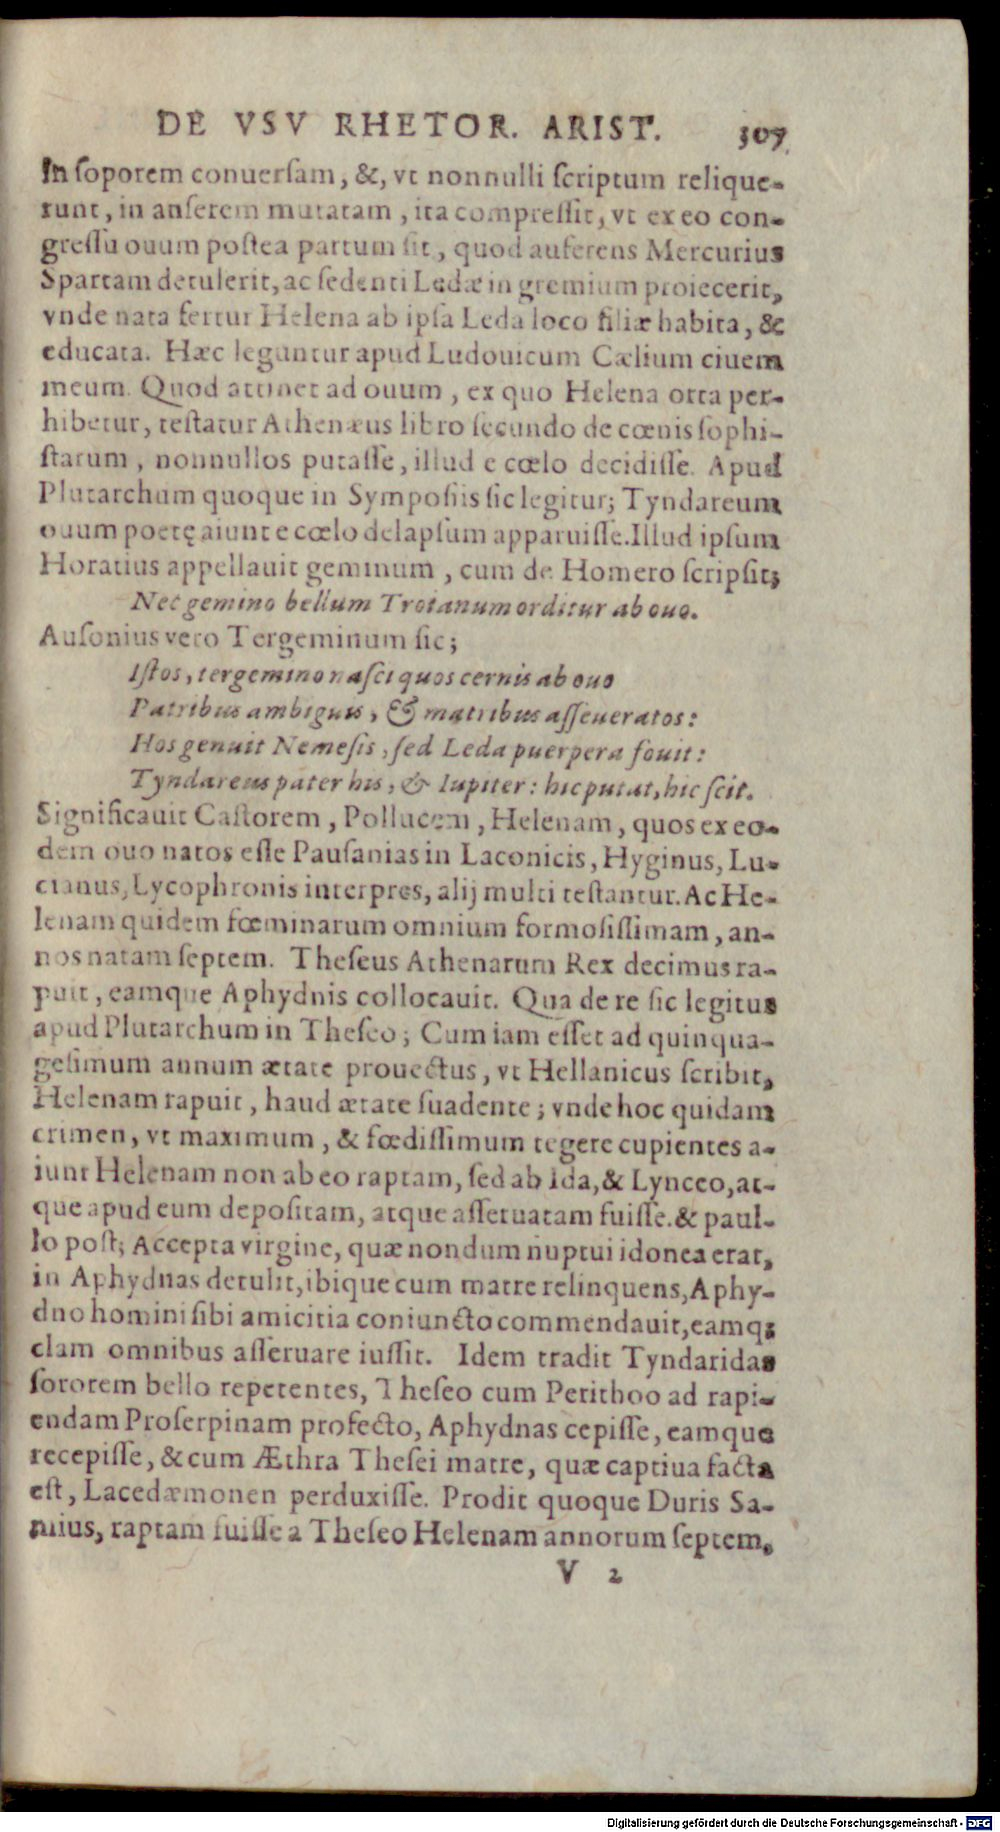 DE VSV RHETOR. ARIST. 307
In ſoporem conuerſam, &, vt nonnulli ſcriptum relique-
runt, in anſerem mutatam, ita compreſſit, vt ex eo con-
greſſu ouum poſtea partum ſit, quod auferens Mercurius
Spartam detulerit, ac ſedenti Ledæ in gremium proiecerit,
vnde nata fertur Helena ab ipſa Leda loco filiæ habita, &
educata. Hæc leguntur apud Ludouicum Cælium ciuem
meum. Quod attinet ad ouum, ex quo Helena orta per-
hibetur, teſtatur Athenæus libro ſecundo de cœnis ſophi-
ſtarum, nonnullos putaſſe, illud e cœlo decidiſſe. Apud
Plutarchum quoque in Sympoſiis ſic legitur; Tyndareum
ouum poetę aiunt e cœlo delapſum apparuiſſe. Illud ipſum
Horatius appellauit geminum, cum de Homero ſcripſit;
Nec gemino bellum Troianum orditur ab ouo.
Auſonius vero Tergeminum ſic;
Iſtos, tergemino naſci quos cernis ab ouo
Patribus ambiguis, & matribus aſſeueratos:
Hos genuit Nemeſis, ſed Leda puerpera fouit:
Tyndareus pater his, & Iupiter: hic putat, hic ſcit.
Significauit Caſtorem, Pollucem, Helenam, quos ex eo-
dem ouo natos eſſe Pauſanias in Laconicis, Hyginus, Lu-
cianus, Lycophronis interpres, alij multi teſtantur. Ac He-
lenam quidem fœminarum omnium formoſiſſimam, an-
nos natam ſeptem. Theſeus Athenarum Rex decimus ra-
puit, eamque Aphydnis collocauit. Qua de re ſic legitus
apud Plutarchum in Theſeo; Cum iam eſſet ad quinqua-
geſimum annum ætate prouectus, vt Hellanicus ſcribit,
Helenam rapuit, haud ætate ſuadente; vnde hoc quidam
crimen, vt maximum, & fœdiſſimum tegere cupientes a-
iunt Helenam non ab eo raptam, ſed ab Ida, & Lynceo, at-
que apud eum depoſitam, atque aſſeruatam fuiſſe. & paul-
lo poſt; Accepta virgine, quæ nondum nuptui idonea erat,
in Aphydnas detulit, ibique cum matre relinquens, Aphy-
dno homini ſibi amicitia coniuncto commendauit, eamq;
clam omnibus aſſeruare iuſſit. Idem tradit Tyndaridas
ſororem bello repetentes, Theſeo cum Perithoo ad rapi-
endam Proſerpinam profecto, Aphydnas cepiſſe, eamque
recepiſſe, & cum Æthra Theſei matre, quæ captiua facta
eſt, Lacedæmonen perduxiſſe. Prodit quoque Duris Sa-
mius, raptam fuiſſe a Theſeo Helenam annorum ſeptem,
V 2
Digitalisierung gefördert durch die Deutsche Forschungsgemeinschaft - DFG